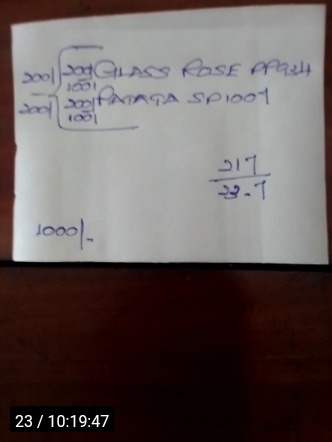 200/ 200/ GLASS ROSE PP934
100/
200/ 200/ PATAGA SP1007
100/
217
23.7
1000/-
23 / 10:19:47